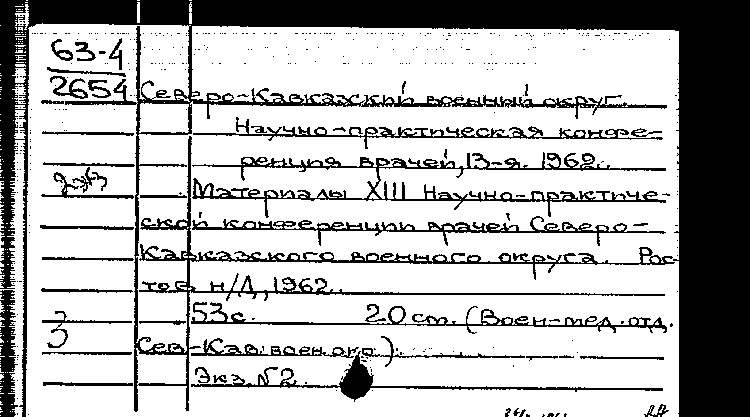 63-4
2654 Северо-Кавказский военный округ.
Научно-практическая конфе-
ренция врачей, 13-я. 1962.
Материалы XIII Научно-практиче-
ской конференции врачей Северо-
Кавказского военного округа. Рос-
тов н/Д, 1962.
53с. 20 см. (Воен-мед. отд.
3
Сев-Кав. воен. окр.).
Экз. №2